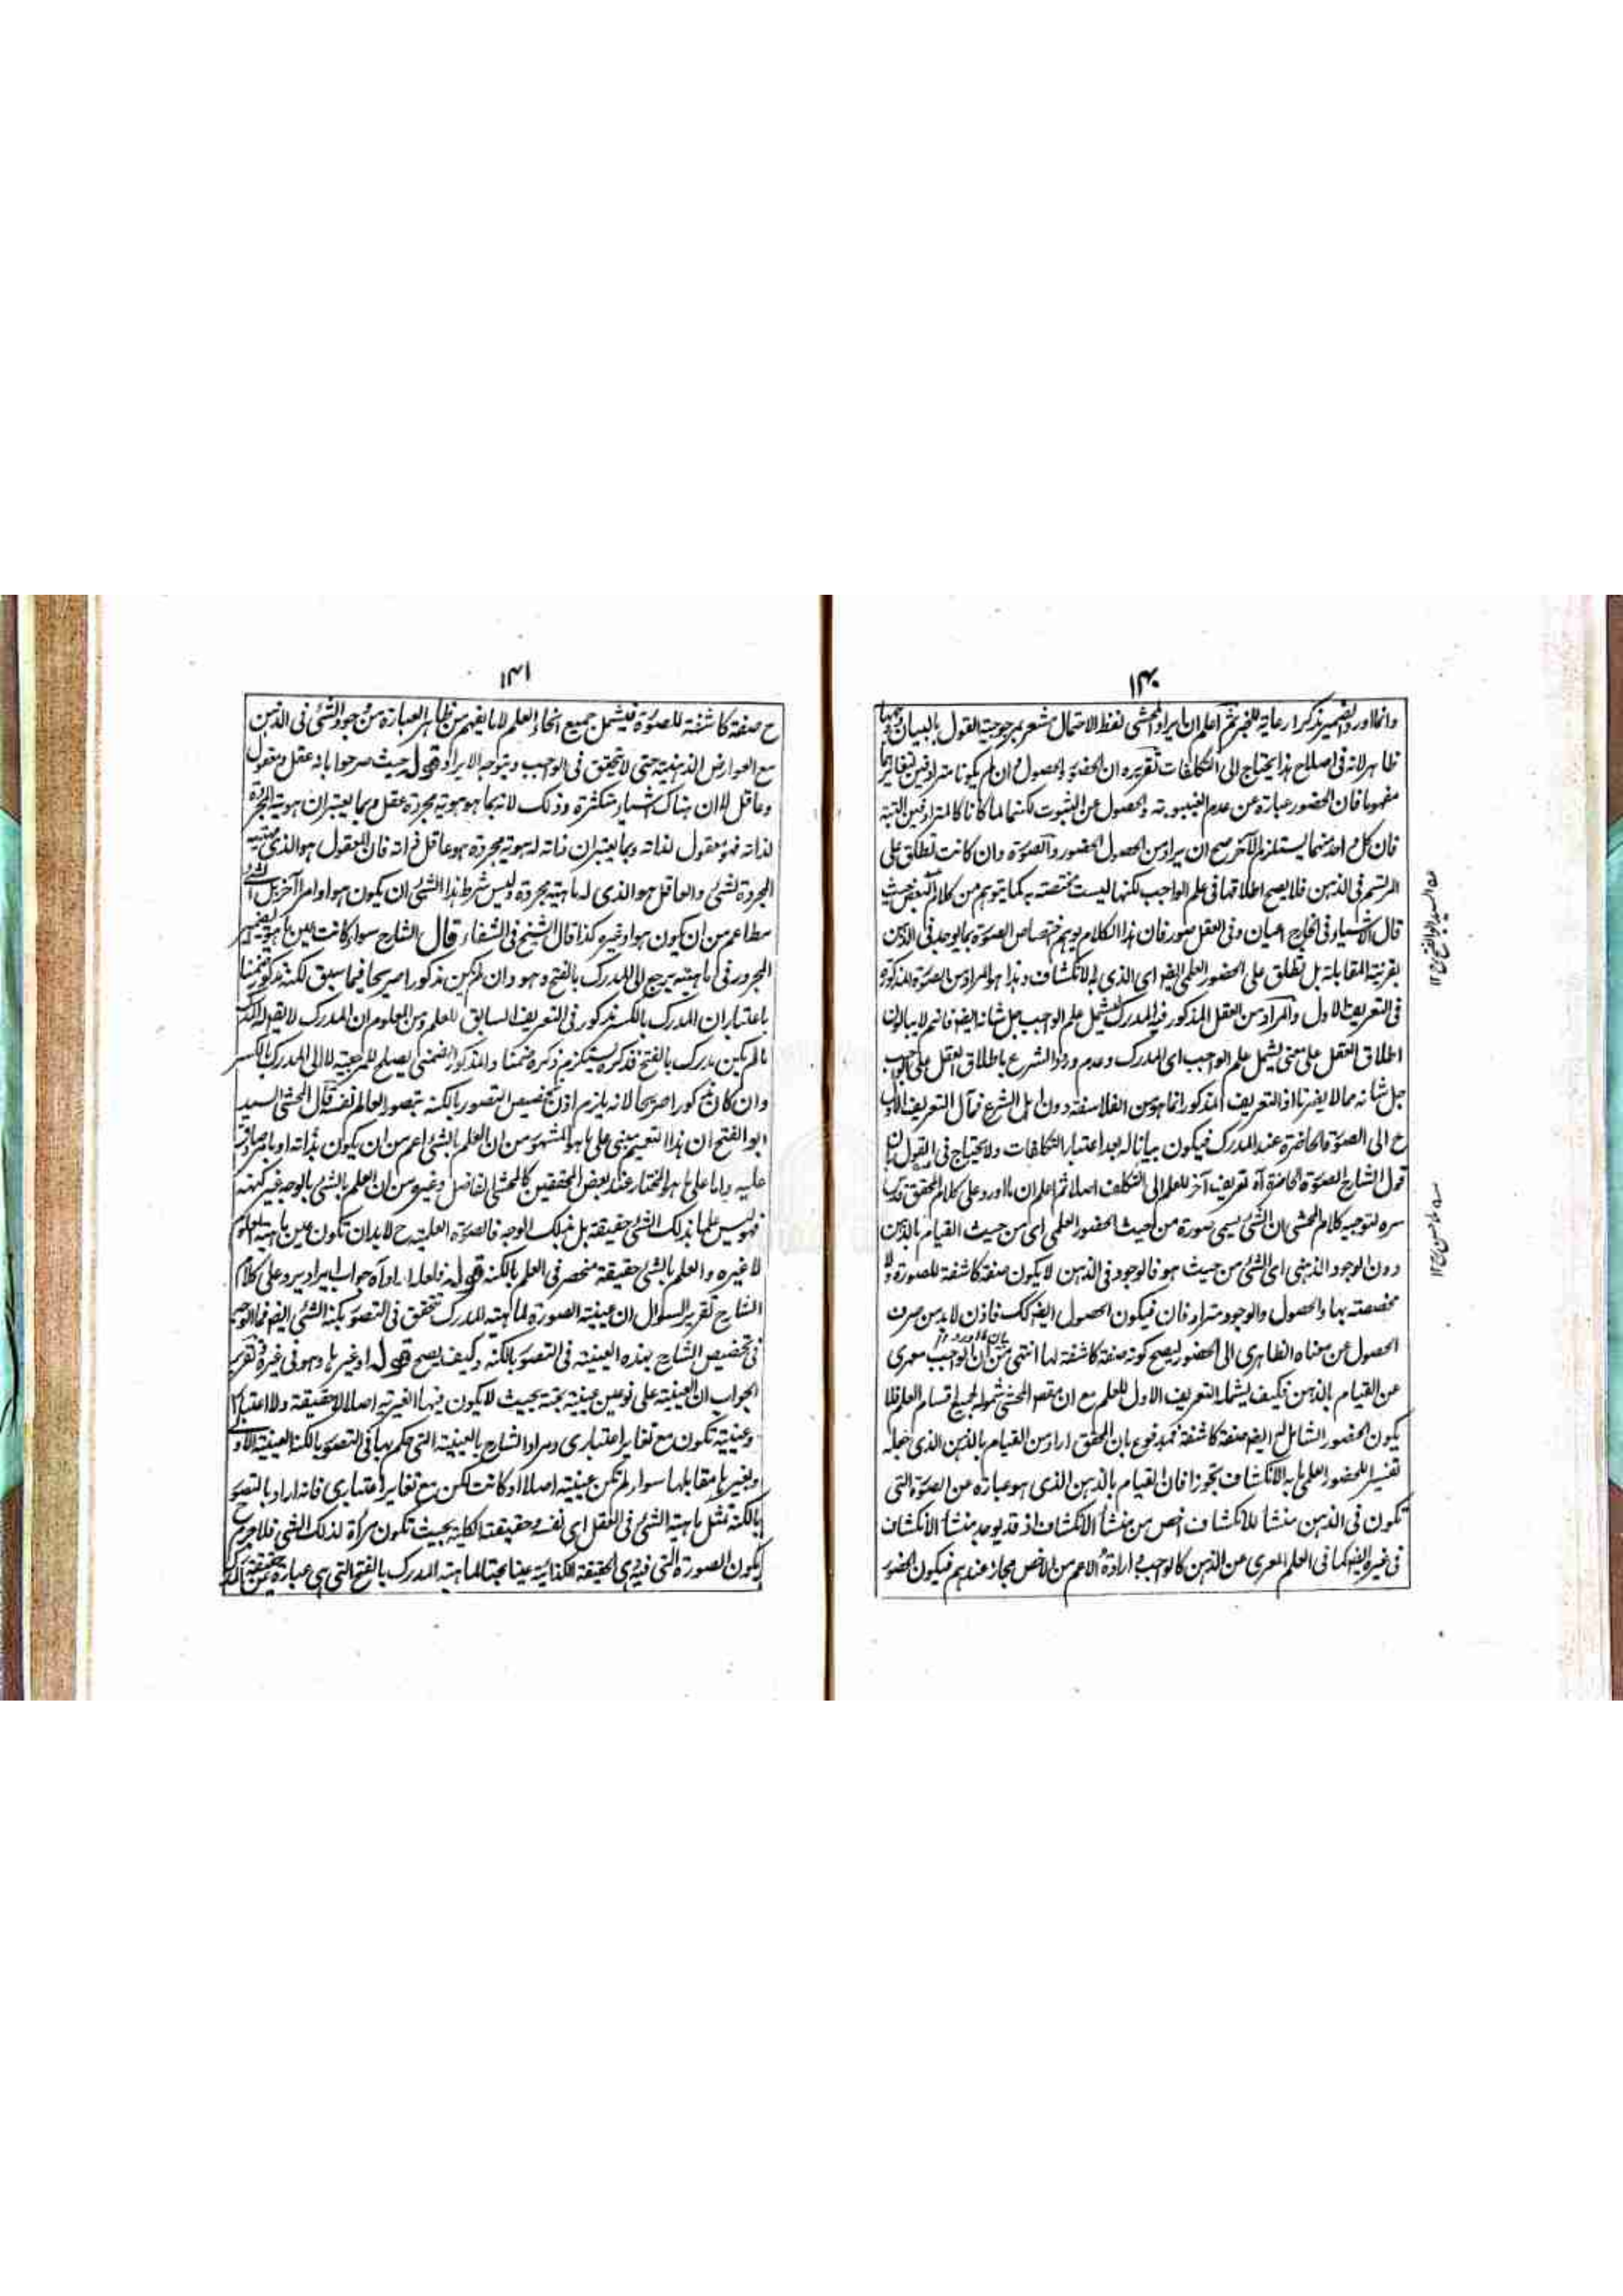 ١٤٠
وانما اورد الضمير مذكرا رعاية للخبر ثم اعلم ان ايراد المحشى لفظ الاحتمال مشعر بمرجوحية القول بالبيان وجهها
ظاهر لانه فى اصلاح هذا يحتاج الى التكلفات تقريره ان الحضور والحصول وان لم يكونا مترادفين لتغايرهما
مفهوما فان الحضور عبارة عن عدم الغيبوبة والحصول عن الثبوت لكنهما لما كانا كالمترادفين البتة
فان كل واحد منهما يستلزم الآخر صح ان يراد من الحصول الحضور والصورة وان كانت تطلق على
المرتسم فى الذهن فلا يصح اطلاقها فى علم الواجب لكنها ليست مختصة به كما يتوهم من كلام البعض حيث
قال الاشياء فى الخارج اعيان وفى العقل صور فان هذا الكلام يوهم اختصاص الصورة بما يوجد فى الذهن
بقرينة المقابلة بل تطلق على الحضور العلمى ايضا اى الذى به الانكشاف وهذا هو المراد من الصورة المذكورة
فى التعريف الاول والمراد من العقل المذكور فيه المدرك ليشمل علم الواجب جل شانه ايضا فانهم لا يبالون
اطلاق العقل على معنى يشمل علم الواجب اى المدرك وعدم ورود الشرع باطلاق العقل على الواجب
جل شانه مما لا يضرنا اذ التعريف المذكور انما هو من الفلاسفة دون اهل الشرع فمآل التعريف الاول
ح الى الصورة الحاضرة عند المدرك فيكون بيانا له بعد اعتبار التكلفات ولا يحتاج فى القول بان
قول الشارح الصورة الحاضرة آه تعريف آخر للعلم الى التكلف اصلا ثم اعلم ان ما اورد على كلام المحقق قدس
سره لتوجيه كلام المحشى ان الشئ يسمى صورة من حيث الحضور العلمى اى من حيث القيام بالذهن
دون الوجود الذهنى اى الشئ من حيث هو فالوجود فى الذهن لا يكون صفة كاشفة للصورة ولا
مخصصة بها والحصول والوجود مترادفان فيكون الحصول ايضا كك فاذن لا بد من صرف
الحصول عن معناه الظاهرى الى الحضور ليصح كونه صفة كاشفة لها انتهى من ان الواجب معرى
عن القيام بالذهن فكيف يشمله التعريف الاول للعلم مع ان مقصد المحشى شموله لجميع اقسام العلم فلا
يكون الحضور الشامل له ايضا صفة كاشفة فمدفوع بان المحقق اراد من القيام بالذهن الذى جعله
تفسيرا للحضور العلمى ما به الانكشاف تجوزا فان القيام بالذهن الذى هو عبارة عن الصورة التى
تكون فى الذهن منشأ للانكشاف اخص من منشأ الانكشاف اذ قد يوجد منشأ الانكشاف
فى غيره ايضا كما فى العلم المعرى عن الذهن كالواجب وارادة الاعم من الاخص مجاز عندهم فيكون الحضور
السيد ابو الفتح ١٢
ملا حسن ١٢
١٤١
ح صفة كاشفة للصورة فيشمل جميع انحاء العلم لا ما يفهم من ظاهر العبارة من وجود الشئ فى الذهن
مع العوارض الذهنية حتى لا يتحقق فى الواجب ويتوجه الايراد قوله حيث صرحوا بانه عقل ومعقول
وعاقل لا ان هناك اشياء متكثرة وذلك لانه بما هو هوية مجردة عقل وبما يعتبر ان هوية المجردة
لذاته فهو معقول لذاته وبما يعتبر ان ذاته له هوية مجردة هو عاقل ذاته فان المعقول هو الذى ماهيته
المجردة لشئ والعاقل هو الذى له ماهية مجردة وليس شرط هذا الشئ ان يكون هو او امرا آخر بل الشئ
مطلقا اعم من ان يكون هو او غيره كذا قال الشيخ فى الشفاء قال الشارح سواء كانت عين ماهيته الضمير
المجرور فى ماهيته يرجع الى المدرك بالفتح وهو وان لم يكن مذكورا صريحا فيما سبق لكنه مذكور ضمنا
باعتبار ان المدرك بالكسر مذكور فى التعريف السابق للعلم ومن المعلوم ان المدرك لا يقوله المدرك
ما لم يكن يدرك بالفتح فذكره يستلزم ذكره ضمنا والمذكور الضمنى يصلح للمرجعية لا الى المدرك بالكسر
وان كان مذكورا صريحا لانه يلزم اذن تخصيص التصور بالكنه بتصور العالم نفسه قال المحشى السيد
ابو الفتح ان هذا التعميم مبنى على ما هو المشهور من ان العلم بالشئ اعم من ان يكون بذاته او بامر صادق
عليه واما على ما هو المختار عند بعض المحققين كالمحشى الفاضل وغيره من ان العلم بالشئ بالوجه غير كنهه
فهو ليس علما بذلك الشئ حقيقة بل بذلك الوجه فالصورة العلمية ح لا بد ان تكون عين ماهية المعلوم
لا غيره والعلم بالشئ حقيقة منحصر فى العلم بالكنه قوله فلعله اراد آه جواب ايراد يرد على كلام
الشارح تقرير السوال ان عينية الصورة لماهية المدرك تتحقق فى التصور بكنه الشئ ايضا فما الوجه
فى تخصيص الشارح هذه العينية فى التصور بالكنه وكيف يصح قوله او غيرها وهو فى غيره وتقرير
الجواب ان العينية على نوعين عينية بحتة بحيث لا يكون فيها الغيرية اصلا لا حقيقة ولا اعتبارا
وعينية تكون مع تغاير اعتبارى ومراد الشارح بالعينية التى حكم بها فى التصور بالكنه العينية الاولى
وبغيرها مقابلها سواء لم تكن عينية اصلا او كانت لكن مع تغاير اعتبارى فانه اراد بالتصور
بالكنه تمثل ماهية الشئ فى العقل اى نفسه وحقيقته الكلية بحيث تكون مرأة لذلك الشئ فلا جرم ح
يكون الصورة التى فيه اى الحقيقة الكلية عينا بحتا لماهية المدرك بالفتح التى هى عبارة عن حقيقة المدرك